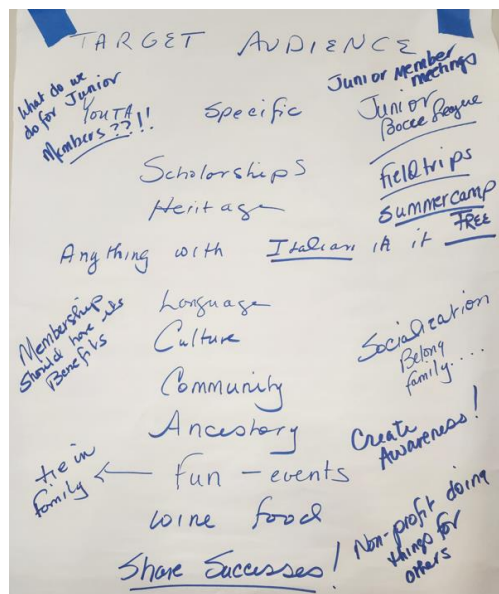 TARGET AUDIENCE
What do we
do for Junior
Members??!!
YOUTH
Specific
Junior Member
meetings
Junior
Bocce League
Scholarships
Heritage
Field trips
Summer camp
FREE
Anything with Italian in it
Membership
Should have its
Benefits
Language
Culture
Community
Ancestory
Socialization
Belong
family....
Create
Awareness!
tie in
family
Fun - events
wine food
Share Successes!
Non-profit doing
things for
others